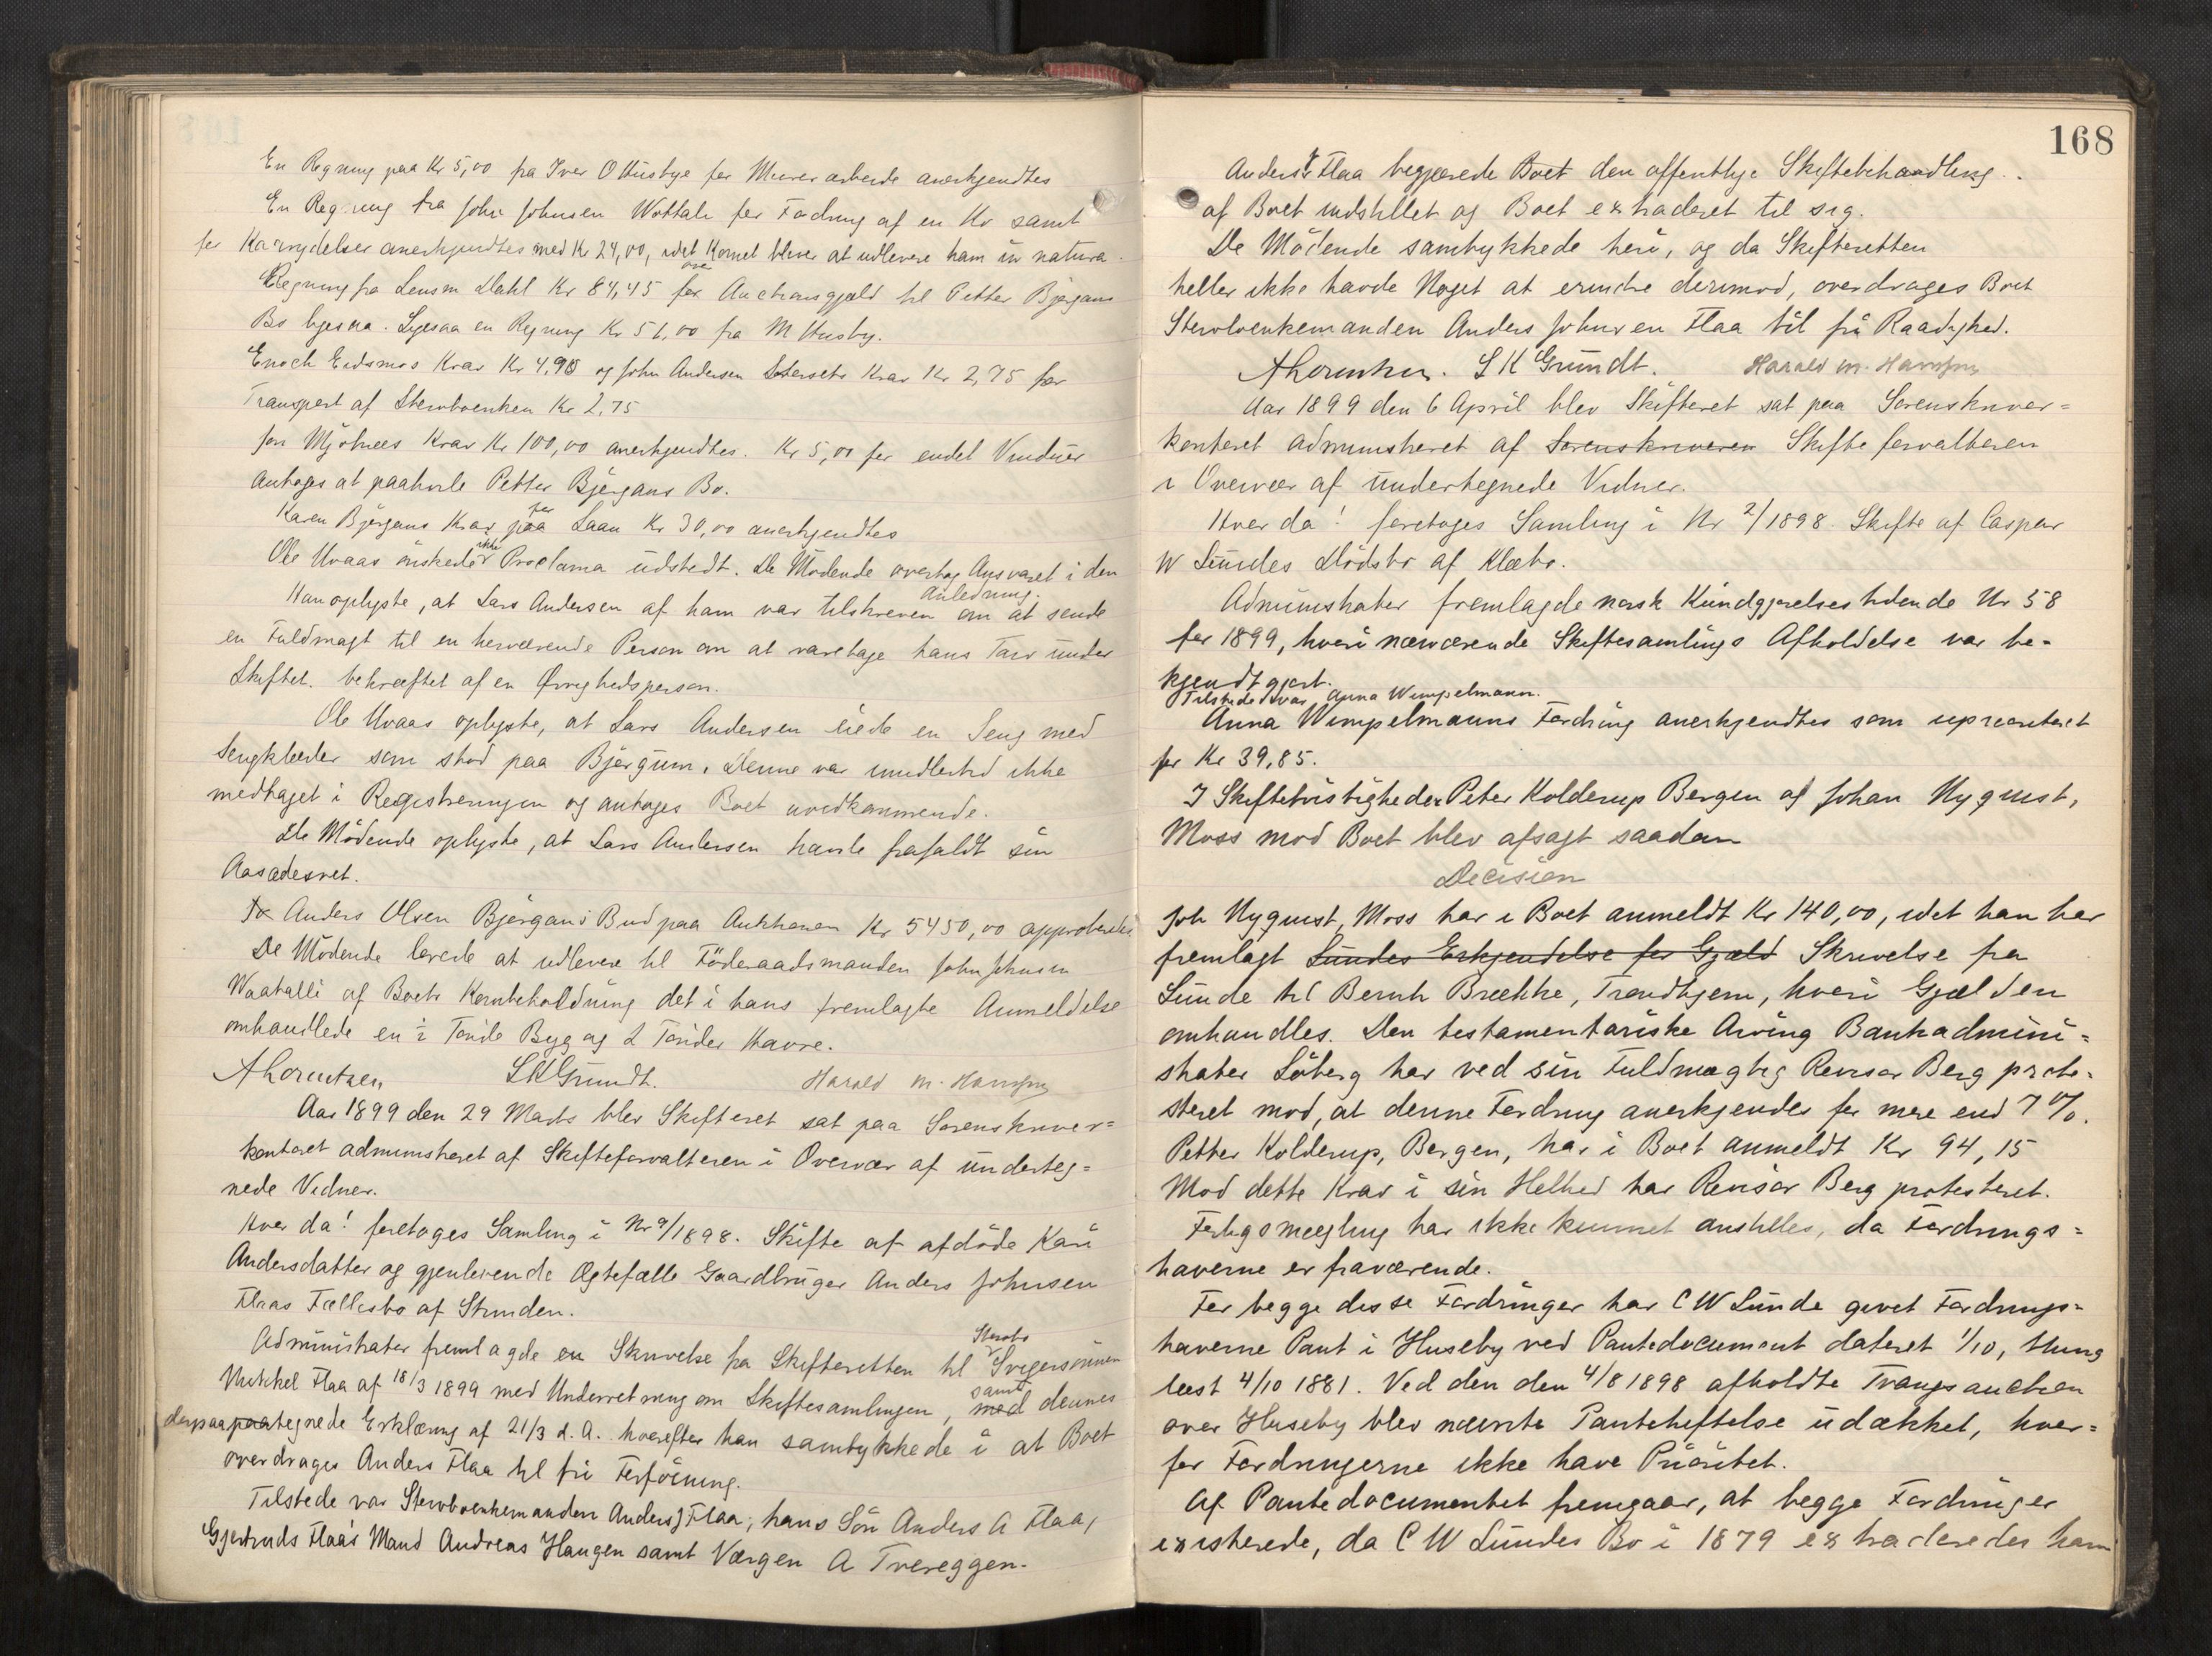 En Regning paa Kr 5,00 fra Iver O Husbye for Murerarbeide anerkjendtes
En Regning fra John Johnsen Wottali for Fodring af en Ko samt
for Karvydelser anerkjendtes med Kr 24,00, idet Kornet bliver at udlevere ham in natura.
Regning fra Lensm Dahl Kr 84,45 for Auctionsgjæld til Petter Bjørgans
Bo ligesaa. Ligesaa en Regning Kr 51,00 fra M Husby.
Enoch Eidsmos Krav Kr 4,90 og John Andersen Krav Kr 2,75 for
Transport af Stervboenken Kr 2,75
Jon Mjølnees Krav Kr 100,00 anerkjendtes. Kr 5,00 for endel Vinduer
antoges at paahvile Petter Bjørgans Bo.
Karen Bjørgans Krav for Laan Kr 30,00 anerkjendtes
Ole Uvaas ønskede ikke Proclama udstedt. De Mødende overtog Ansvaret i den
Anledning.
Han oplyste, at Lars Andersen af ham var tilskreven om at sende
en Fuldmagt til en herværende Person om at varetage hans Tarv under
Skiftet. bekræftet af en Øvrighedsperson.
Ole Uvaas oplyste, at Lars Andersen eiede en Seng med
Sengklæder som stod paa Bjørgum. Denne var imidlertid ikke
medtaget i Registreringen og antoges Boet uvedkommende.
De Mødende oplyste, at Lars Andersen havde frafaldt sin
Aasædesret.
Anders Olsen Bjørgans Bud paa Auktionen Kr 5450,00 approberedes
De Mødende lovede at udlevere til Föderaadsmanden John Johnsen
Waatalli af Boets Kornbeholdning det i hans fremlagte Anmeldelse
omhandlede en ½ Tønde Byg og 2 Tønder Havre.
A Lorentzen S K Grundt. Harald M. Hansen
Aar 1899 den 29 Marts blev Skifteret sat paa Sorenskriver=
kontoret administreret af Skifteforvalteren i Overvær af underteg=
nede Vidner.
Hvor da! foretoges Samling i Nr 9/1898. Skifte af afdøde Kari
Andersdatter og gjenlevende Ægtefælle Gaardbruger Anders Johnsen
Flaas Fællesbo af Strinden.
Administrator fremlagde en Skrivelse fra Skifteretten til Stervbo Svigersønnen
Mikkel Flaa af 18/3 1899 med Underretning om Skiftesamlingen, samt dennes
derpaa paategnede Erklæring af 21/3 d. A. hvorefter han samtykkede i at Boet
overdrages Anders Flaa til fri Forføining.
Tilstede var Stervboenkemanden Anders J Flaa, hans Søn Anders A Flaa,
Gjertruds Flaas Mand Andreas Haugen samt Værgen A Tvereggen.
168
Anders J Flaa begjærede Boet den offentlige Skiftebehandling.
af Boet indstillet og Boet extraderet til sig.
De Mødende samtykkede heri, og da Skifteretten
heller ikke havde Noget at erindre derimod, overdrages Boet
Stervboenkemanden Anders Johnsen Flaa til fri Raadighed.
A Lorentzen. S K Grundt. Harald M. Hansen
Aar 1899 den 6 April blev Skifteret sat paa Sorenskriver=
kontoret administreret af Sorenskriveren Skifteforvalteren
i Overvær af undertegnede Vidner.
Hvor da! foretoges Samling i Nr 2/1898. Skifte af Caspar
W Lundes Dødsbo af Klæbo.
Administrator fremlagde norsk Kundgjørelsestidende Nr 58
for 1899, hvori nærværende Skiftesamlings Afholdelse var be-
kjendtgjort.
Tilstede var Anna Wimpelmann.
Anna Wimpelmanns Fordring anerkjendtes som uprioriteret
for Kr 39,85.
I Skiftetvistigheden Peter Kolderup Bergen og Johan Nyquist,
Moss mod Boet blev afsagt saadan
Decision
Joh Nyquist, Moss har i Boet anmeldt Kr 140,00, idet han har
fremlagt Lundes Erkjendelse for Gjæld Skrivelse fra
Lunde til Bernh Brække, Trondhjem, hvori Gjælden
omhandles. Den testamentariske Arving Bankadmini=
strator Löberg har ved sin Fuldmægtig Revisor Berg prote=
steret mod, at denne Fordring anerkjendes for mere end 7 %.
Petter Kolderup, Bergen, har i Boet anmeldt Kr 94,15
Mod dette Krav i sin Helhed har Revisor Berg protesteret.
Forligsmægling har ikke kunnet anstilles, da Fordrings=
haverne er fraværende.
For begge disse Fordringer har C W Lunde givet Fordrings=
haverne Pant i Huseby ved Pantedocument dateret 1/10, thing
læst 4/10 1881. Ved den den 4/8 1898 afholdte Tvangsauction
over Huseby blev nævnte Panteheftelse udækket, hvor=
for Fordringerne ikke have Prioritet.
Af Pantedocumentet fremgaar, at begge Fordringer
existerede, da C W Lundes Bo i 1879 extraderedes ham